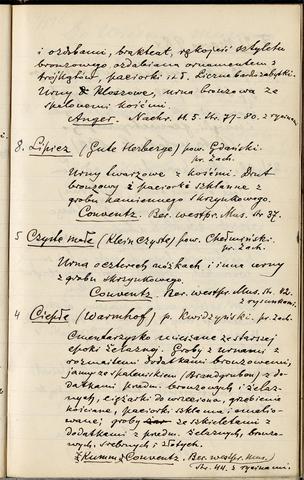 i ozdobami, brakteat, rękojeść sztyletu
bronzowego ozdobiona ornamentem z
trójkątów, paciorki i t.d. Liczne bardzo zabytki.
Urny kloszowe, urna bronzowa ze
spalonemi kośćmi.
Anger. Nachr. H. 5. Str. 77-80. z rycinami
8. Lipiez (Gute Herberge) pow. Gdański.
pr. Zach.
Urny twarzowe z kośćmi. Drut
bronzowy i paciorki szklanne z
grobu kamiennego skrzynkowego.
Conventz. Ber. westpr. Mus. Str. 37.
5 Czyste małe (Klein Czyste) pow. Chełmiński.
pr. Zach.
Urna o czterech nóżkach i inne urny
z grobu skrzynkowego.
Conventz. Ber. westpr. Mus. Str. 42.
z rysunkami.
4 Ciepłe (Warmhof) p. Kwidzyński. pr. Zach.
Cmentarzysko mieszane ze starszej
epoki żelaznej. Groby z urnami, z
rozmaitemi dodatkami bronzowemi,
jamy ze spaleniskiem (Brandgruben) z do-
datkami przedm. bronzowych i żelaz-
nych, ciężarki do wrzeciona, grzebienie
kościane, paciorki szklanne i emalio-
wane; groby ze szkieletami z
dodatkami z przedm. żelaznych, bronzo-
wych, srebrnych i złotych.
Kumm. Conventz. Ber. westpr. Mus.
Str. 44. z rycinami.